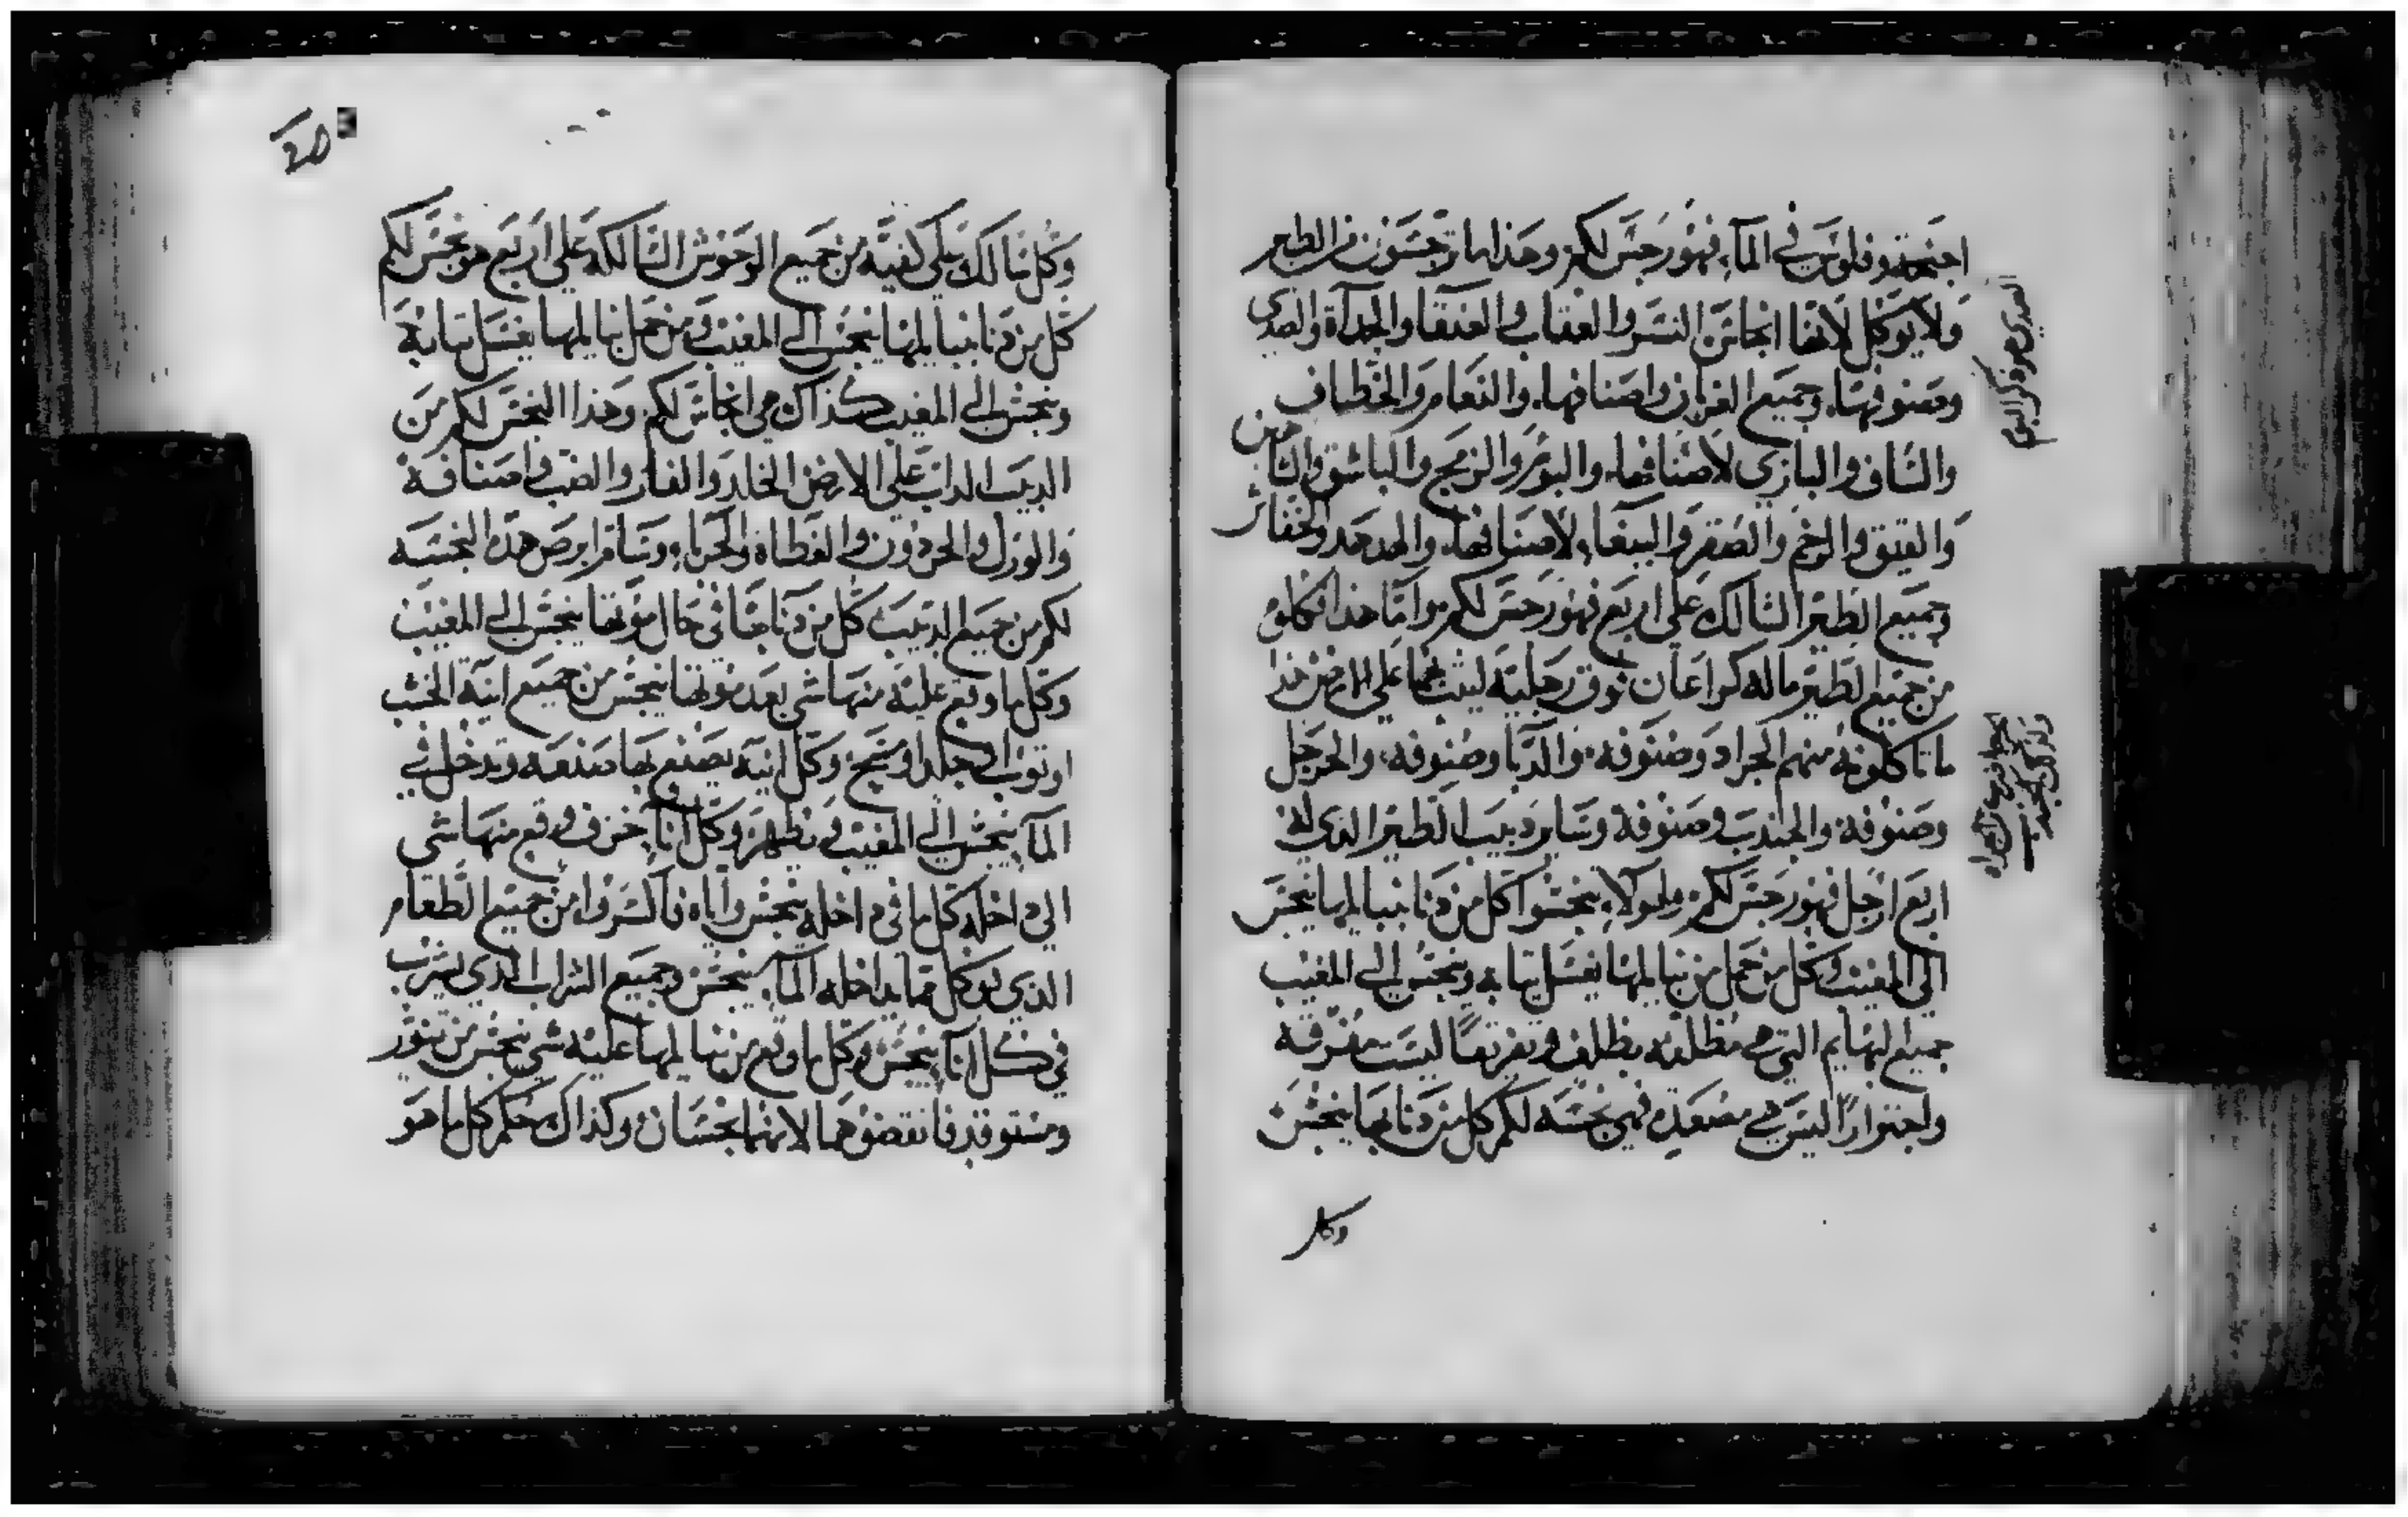 اجنحة وفلوس في المآء فهو رجس لكم وهذا ما ترجسون من الطير
ولا يوكل لانها انجاس النسر والعقاب والعنقا والحدآة والصدى
وصنوفها وجميع الغربان واصنافها والنعام والخطاف
والساف والبازي لاصنافها والبوم والزمج والباشق والشاهين
والقيق والرخم والصقر والببغاء لاصنافها والهدهد والخفاش
وجميع الطير السالك على اربع فهو رجس لكم واما هذا فكلوه
من جميع الطير ماله كراعان فوق رجليه ليثب بهما على الارض هذا
ما تاكلونه منهم الجراد وصنوفه والدبا وصنوفه والحرجل
وصنوفه والجندب وصنوفه وساير دبيب الطير الذي له
اربع ارجل فهو رجس لكم ولهولاء تنجسوا كل من دنا بنبايلها ينجس
الى المغيب وكل من حمل من نبايلها يغسل تيابه وينجس الى المغيب
جميع البهايم التي هي مظلفه بظلف وتفريقا ليست مفرقه
واجترارا ليس هي مصعده فهي نجسه لكم كل من دنا بها ينجس
وكل
وكل سالك على كفيه من جميع الوحوش السالكه على اربع هو نجس لكم
كل من دنا بنبايلها ينجس الى المغيب ومن حمل نبايلها يغسل تيابه
وينجس الى المغيب كذاك هي انجاس لكم وهذا النجس لكم من
الدبيب الداب على الارض الخلد والفار والضب واصنافه
والورل والحردون والعظاة والحرباء وسام ابرص هذه النجسه
لكم من جميع الدبيب كل من دنا بها في حال موتها ينجس الى المغيب
وكل ما وقع عليه منها شي بعد موتها ينجس من جميع انية الخشب
او توب او جلد او مسح وكل انيه يصنع بها صنعه وتدخل في
المآء ينجس الى المغيب ويطهر وكل اناء خزف وقع منها شي
الى داخله كل ما في داخله ينجس واياه فاكسروا من جميع الطعام
الذي يوكل مما يداخله المآء ينجس وجميع الشراب الذي يشرب
في كل انآء ينجس وكل ما وقع من نبايلها عليه شي ينجس من تنور
ومستوقد فانقضوهما لانهما نجسان وكذاك حكم كل ما هو